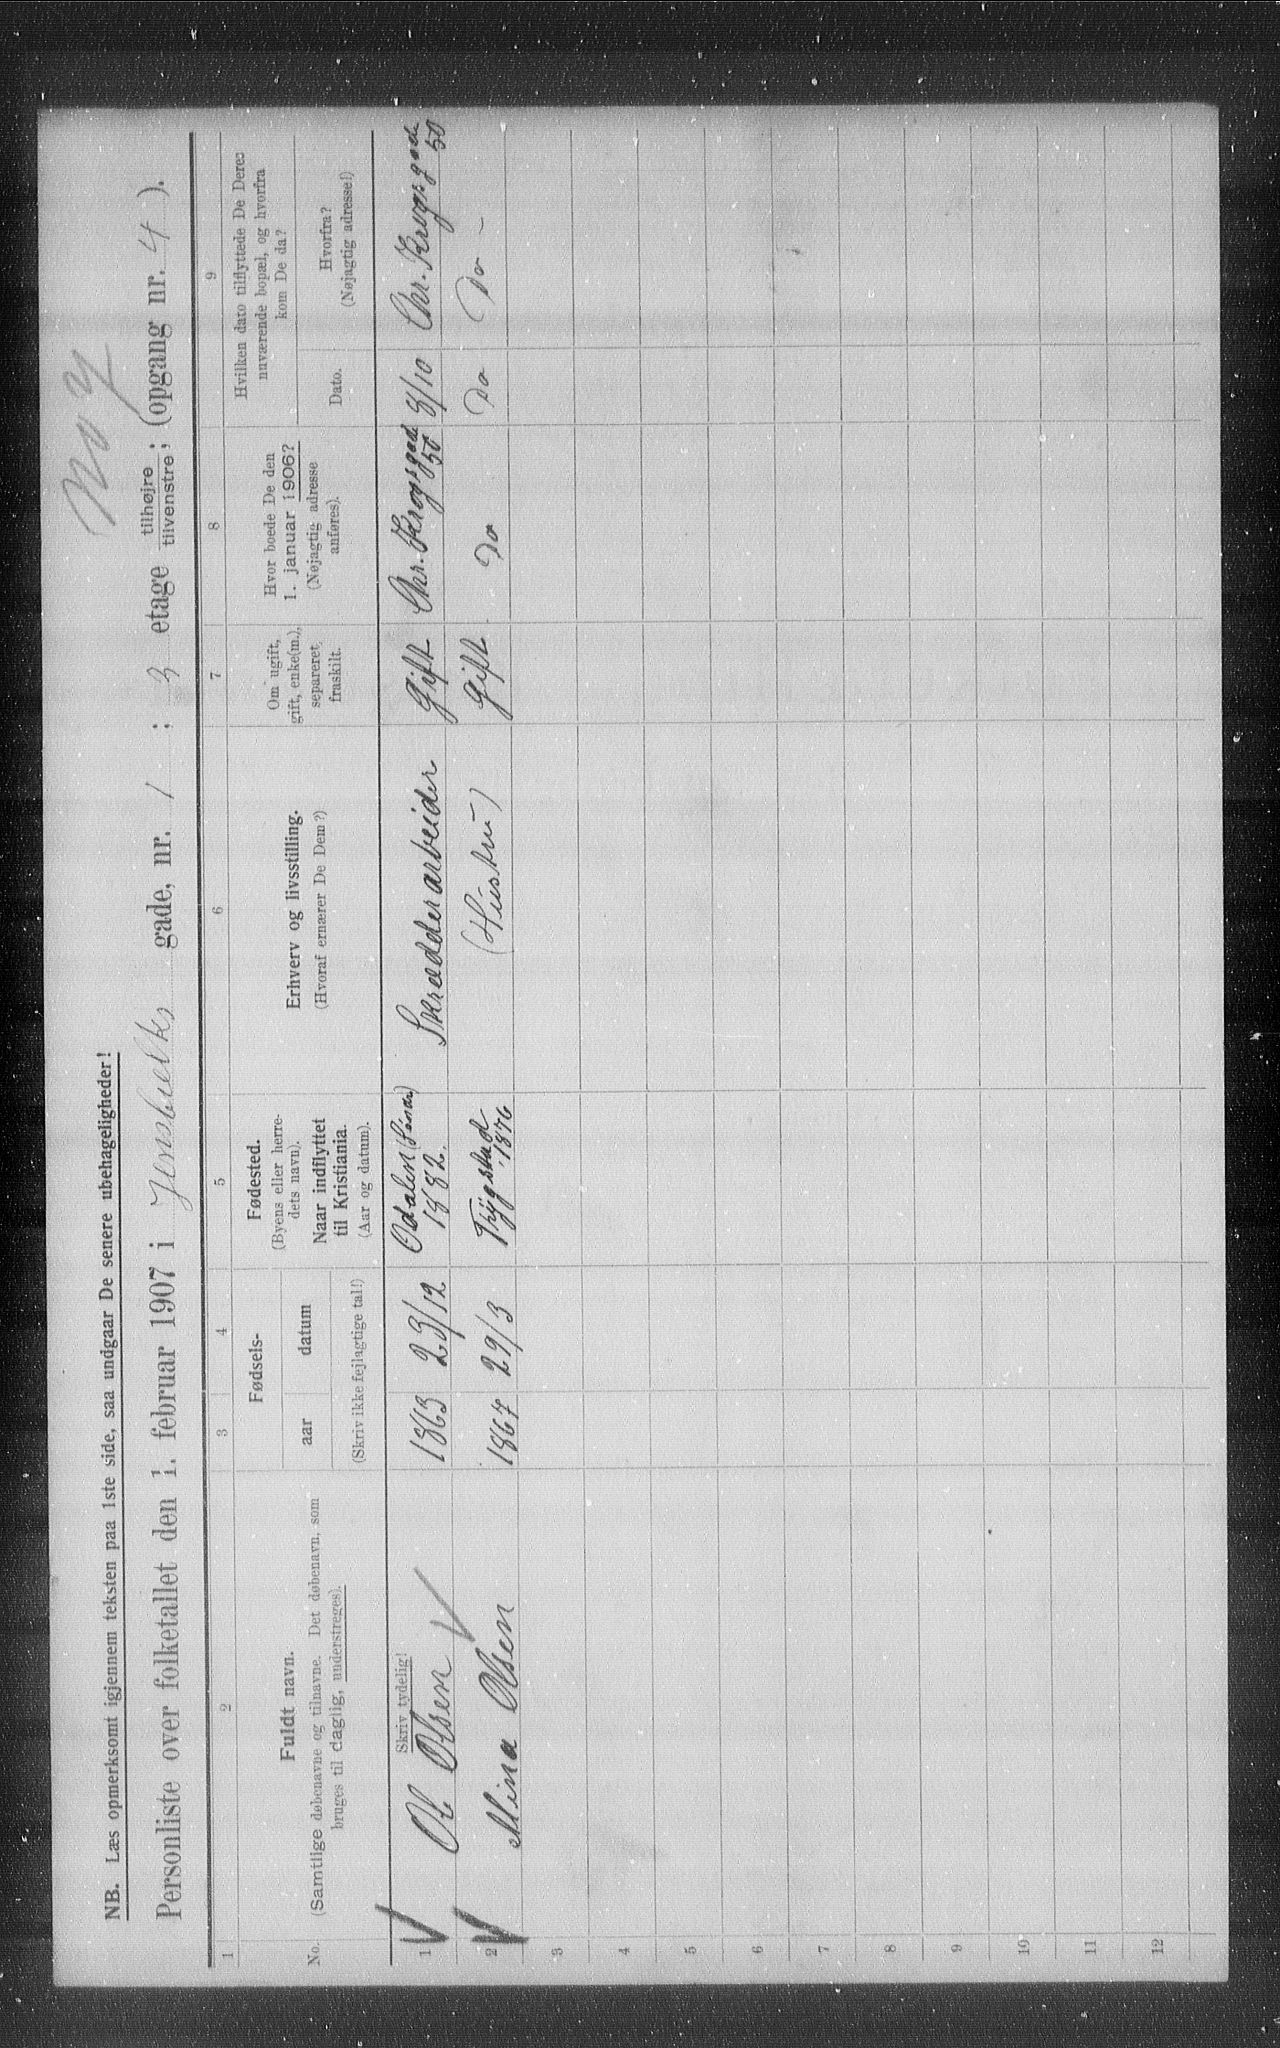 NB. Læs opmerksomt igjennem teksten paa 1ste side, saa undgaar De senere ubehageligheder!
Personliste over folketallet den 1. februar 1907 i Jensbulks gade, nr. 1 ; 3 etage tilhøjre / tilvenstre ; (opgang nr. 4 ).
1 2 3 4 5 6 7 8 9
No.
Fuldt navn.
(Samtlige døbenavne og tilnavne. Det døbenavn, som
bruges til daglig, understreges).
Fødsels-
aar datum
(Skriv ikke fejlagtige tal!)
Fødested.
(Byens eller herre-
dets navn).
Naar indflyttet
til Kristiania.
(Aar og datum).
Erhverv og livsstilling.
(Hvoraf ernærer De Dem?)
Om ugift,
gift, enke(m.),
separeret,
fraskilt.
Hvor boede De den
1. januar 1906?
(Nøjagtig adresse
anføres).
Hvilken dato tilflyttede De Deres
nuværende bopæl, og hvorfra
kom De da?
Dato.
Hvorfra?
(Nøjagtig adresse!)
Skriv tydelig!
1 Ol Olsen 1863 23/12 Odalen 1882. Skrædderarbeider gift Chr. Krogsgade 50 8/10 Chr. Krogsgade 50
2 Mina Olsen 1867 29/3 Trygstad 1876 (Hustru) gift Do Do Do -
3
4
5
6
7
8
9
10
11
12